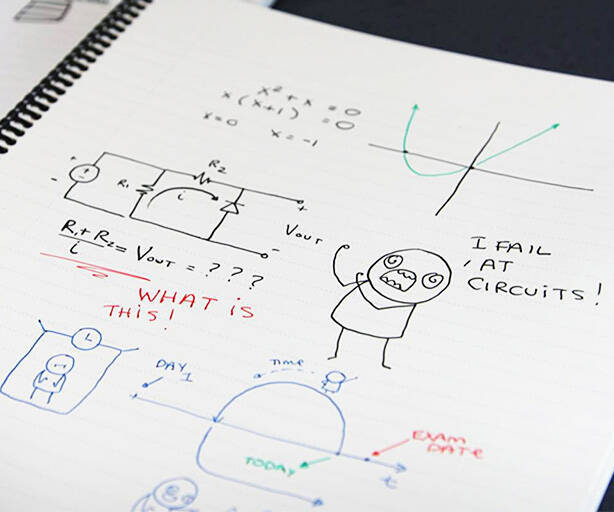 x² + x = 0
x(x+1) = 0
x=0 x=-1
R₂
+
-
+
-
R₁
i
+
-
Vout
(R₁+R₂)/i = Vout = ???
WHAT IS
THIS!
I FAIL
AT
CIRCUITS!
L
DAY
1
TIME
EXAM
DATE
TODAY
t